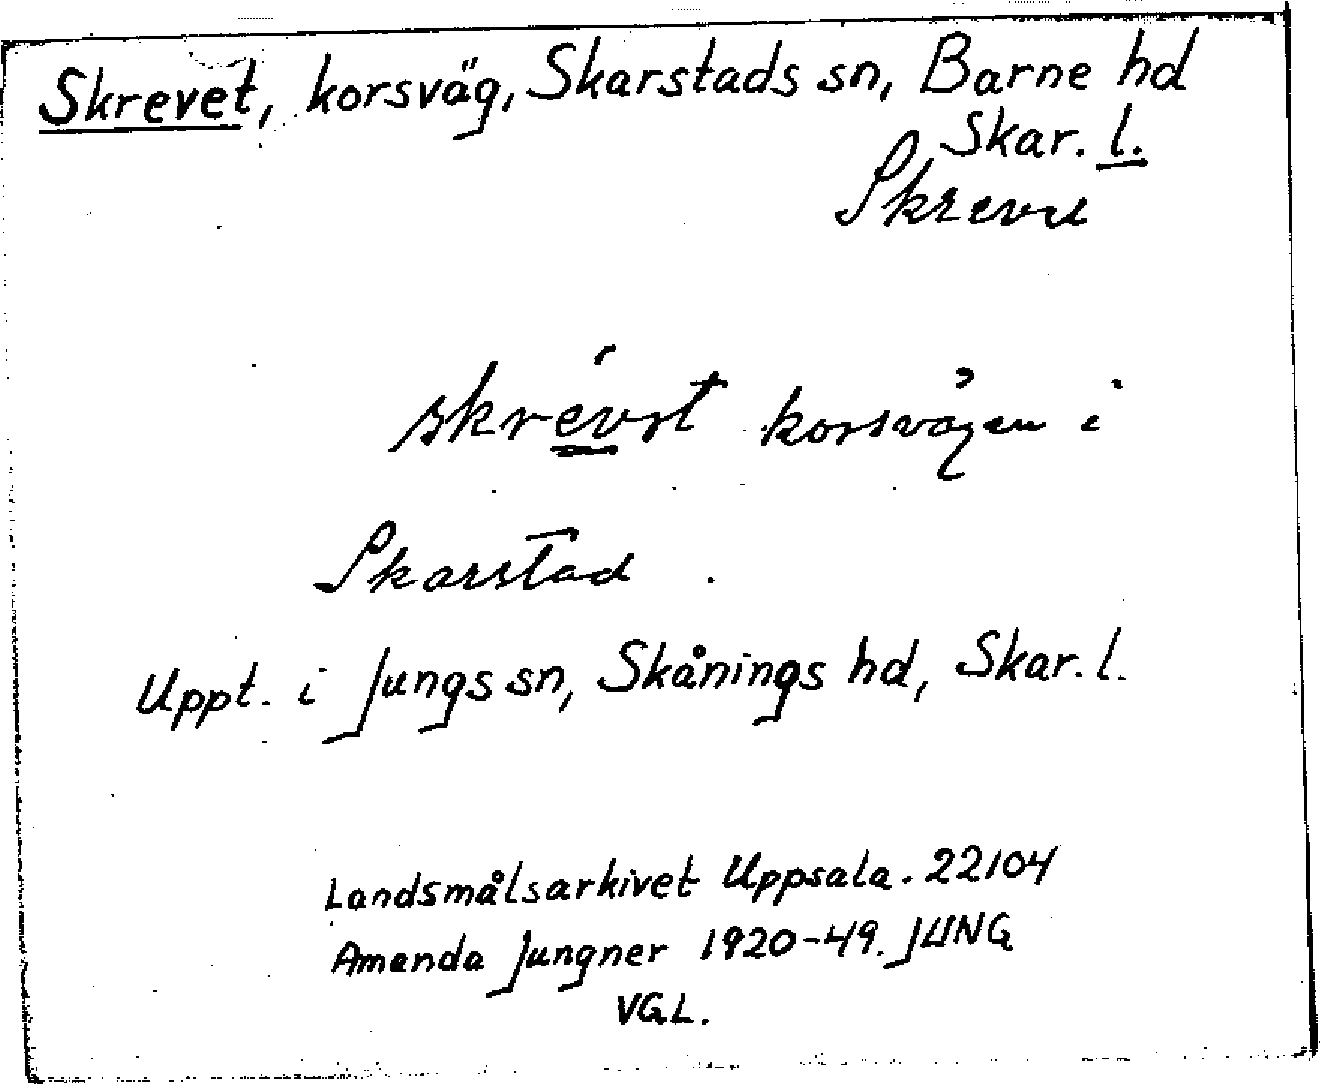 Skrevet, korsväg, Skarstads sn, Barne hd
Skar. l.
Skrevu
skrévrt korsvägen i
Skarstad.
Uppt. i Jungs sn, Skånings hd, Skar. l.
Landsmålsarkivet Uppsala. 22104
Amenda Jungner 1920-49. JUNG
VGL.